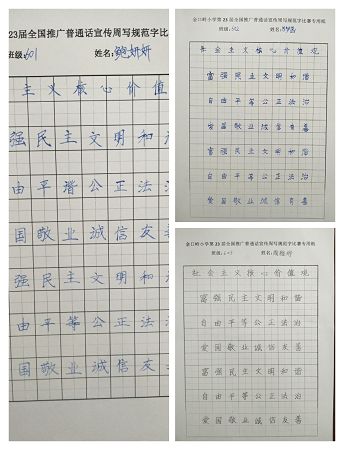 23届全国推广普通话宣传周写规范字比
班级:601
姓名:鲍妍妍
主义核心价值
强民主文明和
由平谐公正法
国敬业诚信友
强民主文明和
由平等公正法
国敬业诚信友
金口岭小学第23届全国推广普通话宣传周写规范字比赛专用纸
班级:502
姓名:
社会主义核心价值观
富强民主文明和谐
自由平等公正法治
爱国敬业诚信友善
富强民主文明和谐
自由平等公正法治
爱国敬业诚信友善
金口岭小学第23届全国推广普通话宣传周写规范字比赛专用纸
班级:
姓名:
社会主义核心价值观
富强民主文明和谐
自由平等公正法治
爱国敬业诚信友善
富强民主文明和谐
自由平等公正法治
爱国敬业诚信友善